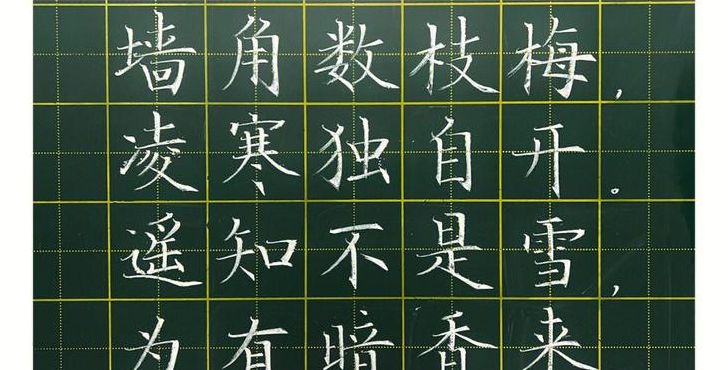 墙角数枝梅，
凌寒独自开。
遥知不是雪，
为有暗香来